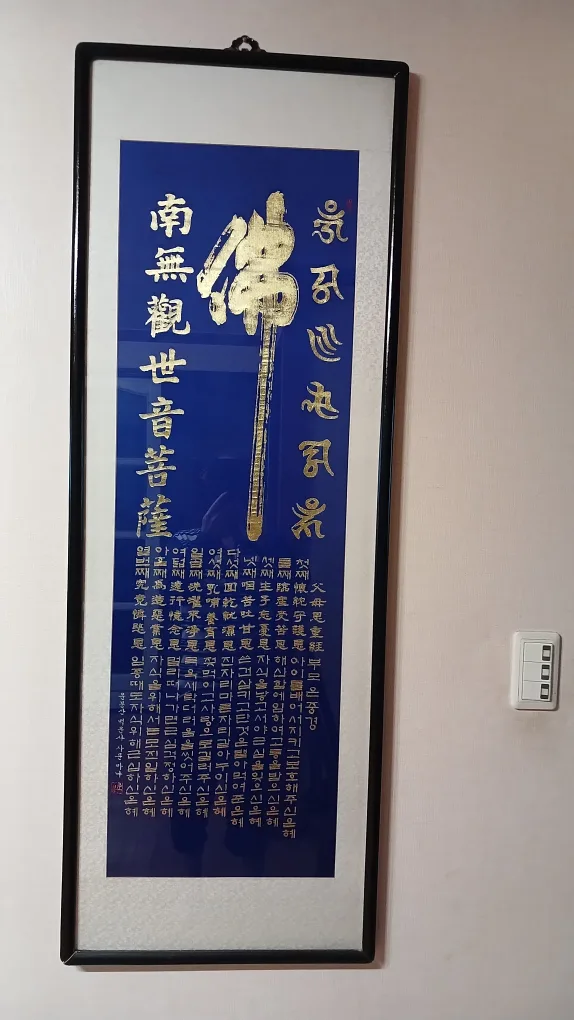 佛
南無觀世音菩薩
父母恩重經 부모은중경
첫째 懷躭守護恩 아이를 배어서 지키고 보호해 주신 은혜
둘째 臨産受苦恩 해산함에 임하여 고통을 받으신 은혜
셋째 生子忘憂恩 자식을 낳고서야 근심을 잊으신 은혜
넷째 咽苦吐甘恩 쓴건 삼키고 단것은 뱉아 먹여준 은혜
다섯째 回乾就濕恩 진자리 마른자리 갈아 누이신 은혜
여섯째 乳哺養育恩 젖먹이고 사랑으로 길러주신 은혜
일곱째 洗濯不淨恩 목욕세탁 더러움을 씻어주신 은혜
여덟째 遠行憶念恩 멀리 떠나가면 근심 걱정하신 은혜
아홉째 爲造惡業恩 자식을 위해서는 모진 일하신 은혜
열번째 究竟憐愍恩 임종때도 자식 위해 근심하신 은혜